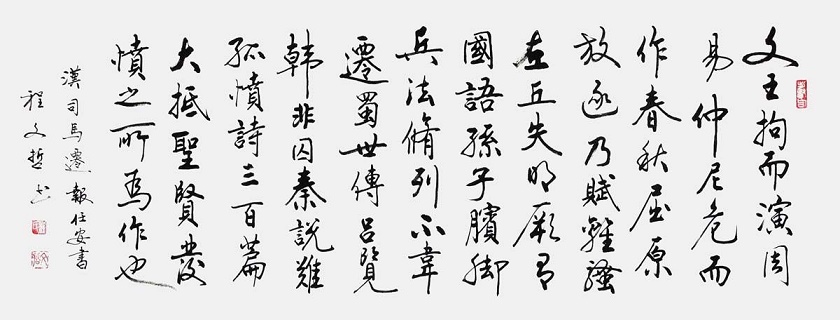 文王拘而演周
易仲尼危而
作春秋屈原
放逐乃賦離騷
左丘失明厥有
國語孫子臏脚
兵法脩列不韋
遷蜀世傳呂覽
韓非囚秦說難
孤憤詩三百篇
大抵聖賢發
憤之所為作也
漢司馬遷報任安書
程文哲书